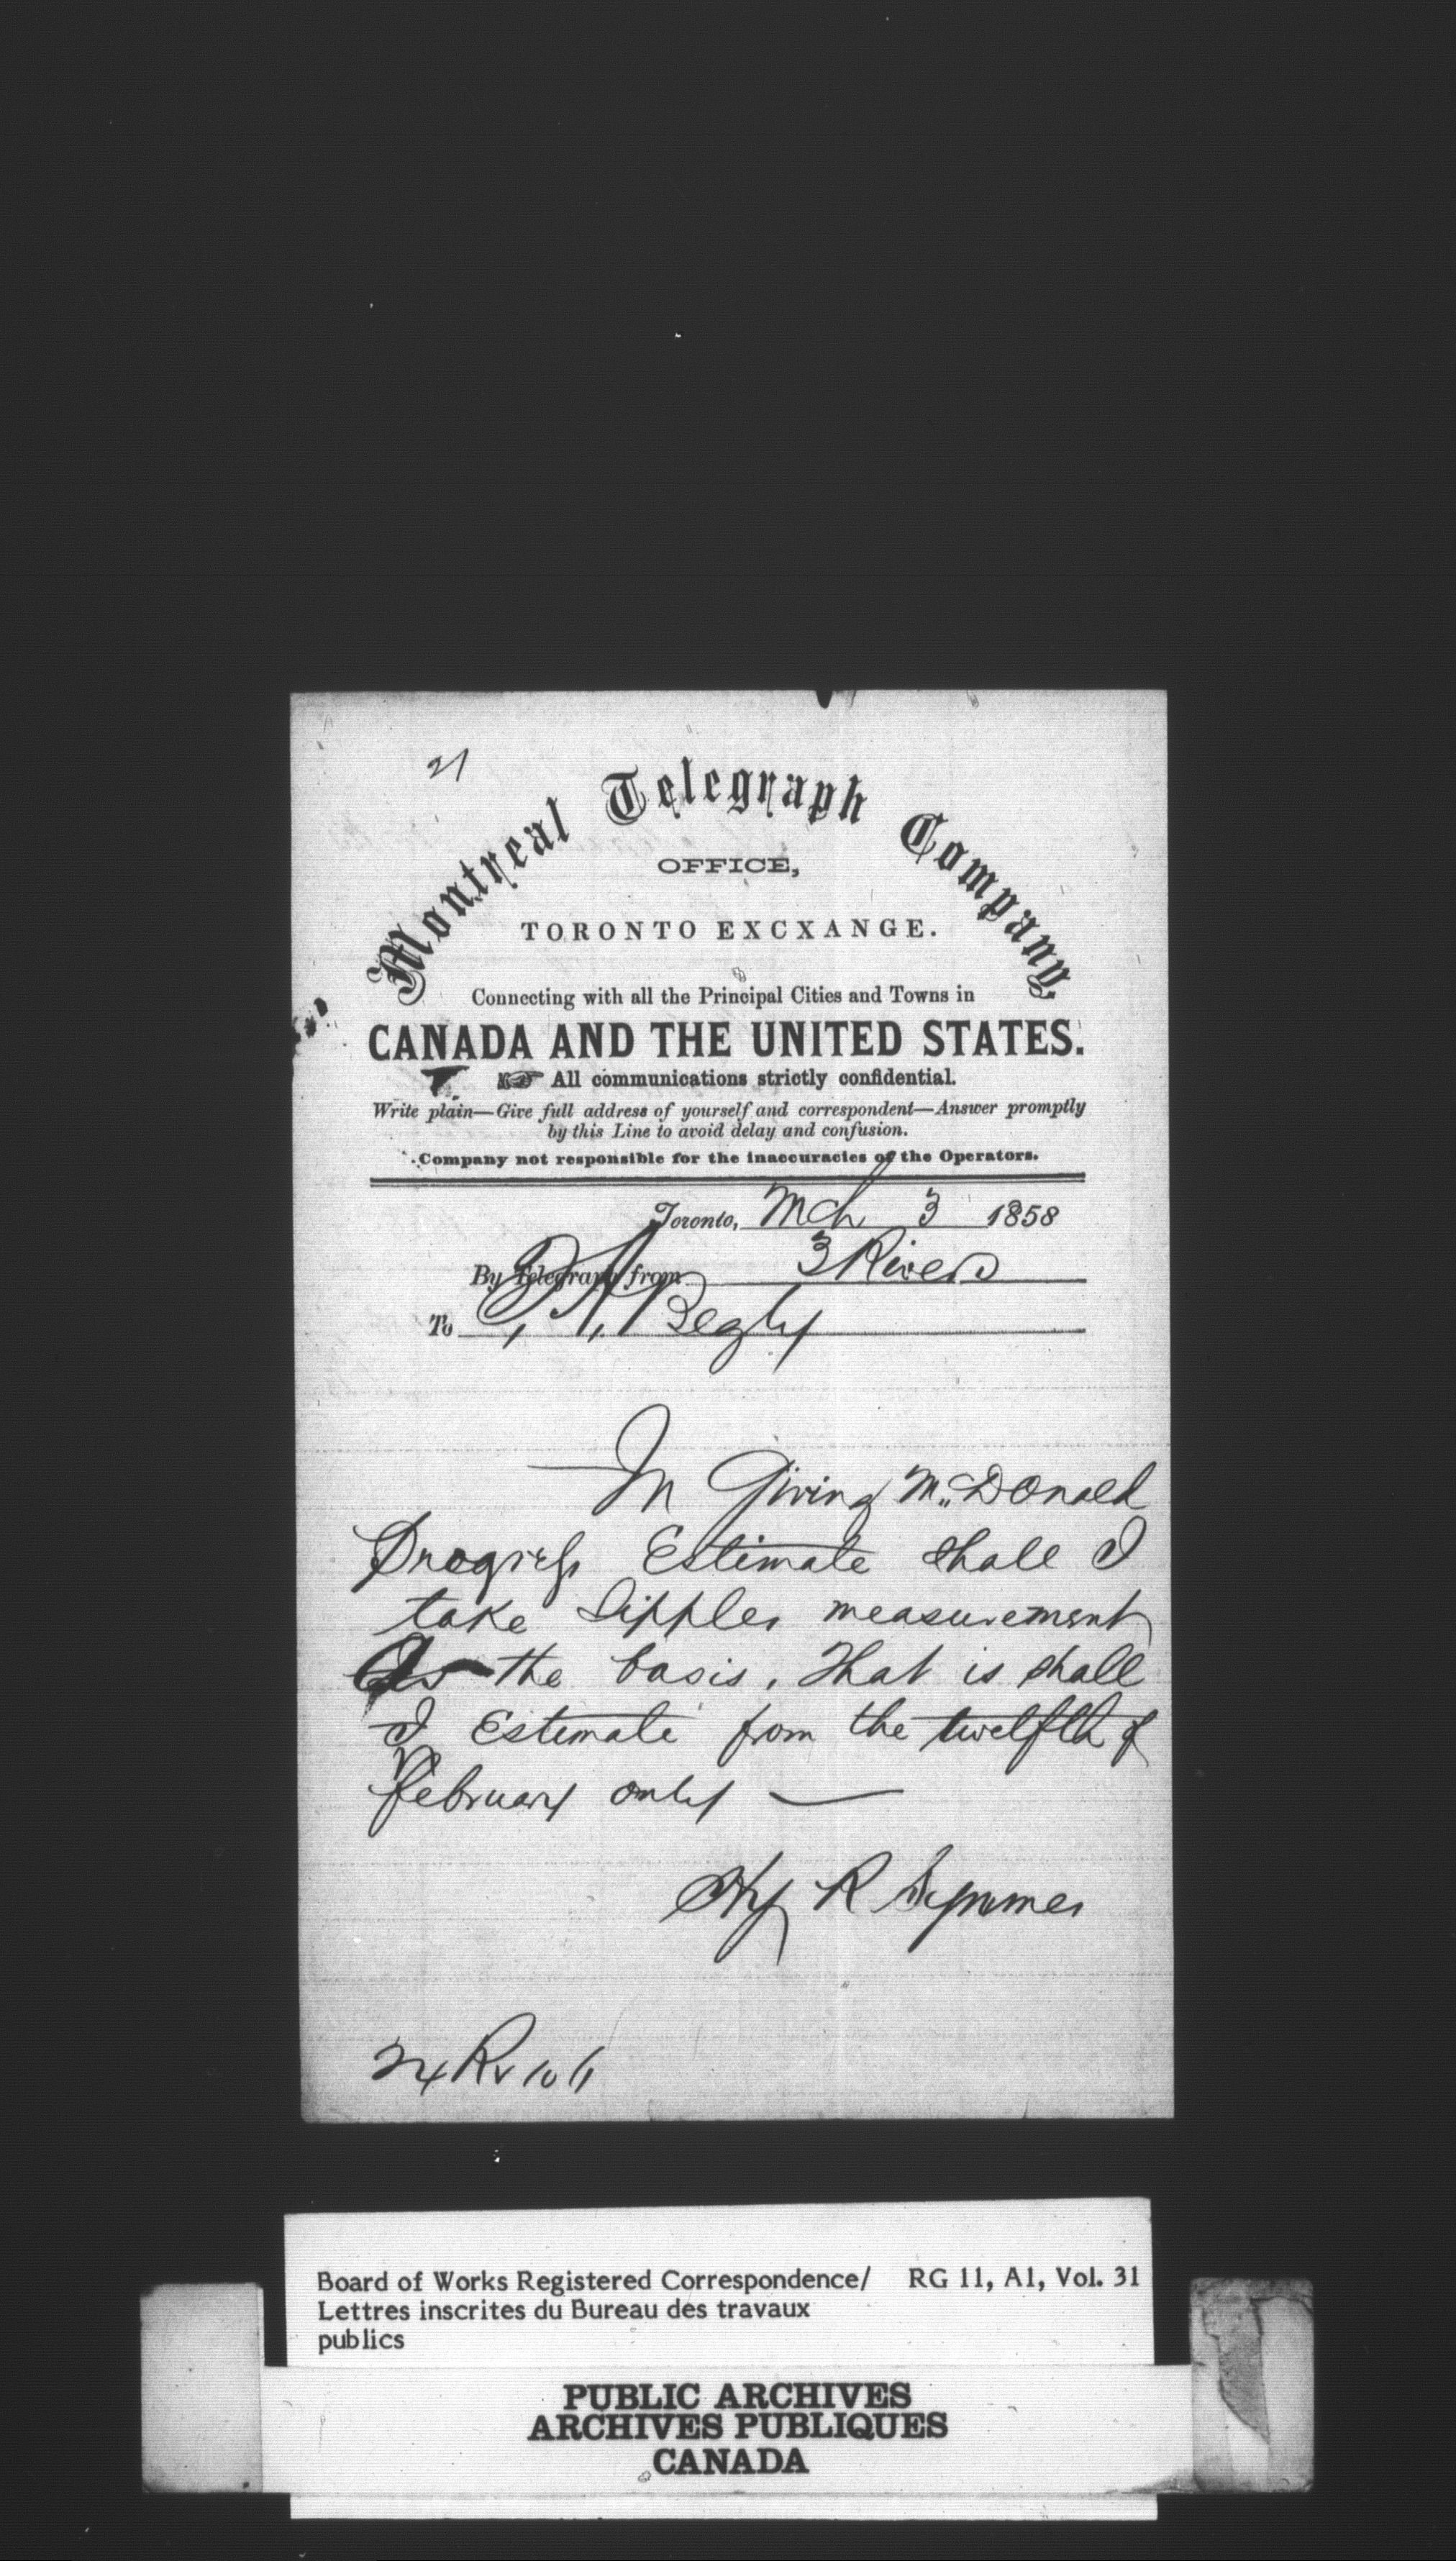 21
Montreal Telegraph Company
OFFICE,
TORONTO EXCXANGE.
Connecting with all the Principal Cities and Towns in
CANADA AND THE UNITED STATES.
All communications strictly confidential.
Write plain—Give full address of yourself and correspondent—Answer promptly
by this Line to avoid delay and confusion.
Company not responsible for the inaccuracies of the Operators.
Toronto, Mch 3 1858
By Telegraph from 3 Rivers
To T, A, Begly
In Giving McDonald
Progress Estimate shall I
take Sipples measurement
As the basis, That is shall
I Estimate from the twelfth of
February only —
Hy R Symmes
Board of Works Registered Correspondence/ RG 11, A1, Vol. 31
Lettres inscrites du Bureau des travaux
publics
PUBLIC ARCHIVES
ARCHIVES PUBLIQUES
CANADA